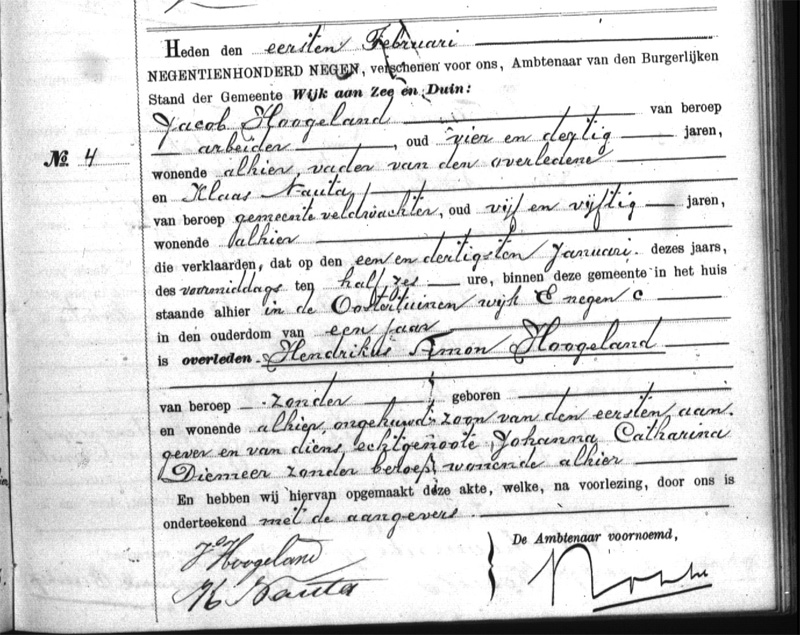 Heden den eersten Februari
NEGENTIENHONDERD NEGEN, verschenen voor ons, Ambtenaar van den Burgerlijken
Stand der Gemeente Wijk aan Zee en Duin:
Jacob Hoogeland van beroep
arbeider, oud vier en dertig jaren,
No. 4
wonende alhier, vader van den overledene
en Klaas Nauta,
van beroep gemeente veldwachter, oud vijf en vijftig jaren,
wonende alhier
die verklaarden, dat op den een en dertigsten Januari dezes jaars,
des voormiddags ten half zes ure, binnen deze gemeente in het huis
staande alhier in de Oostertuinen wijk E negen c
in den ouderdom van een jaar
is overleden Hendrikus Simon Hoogeland
van beroep zonder geboren
en wonende alhier, ongehuwd, zoon van den eersten aan-
gever en van diens echtgenoote Johanna Catharina
Diemeer zonder beroep, wonende alhier
En hebben wij hiervan opgemaakt deze akte, welke, na voorlezing, door ons is
onderteekend met de aangevers.
De Ambtenaar voornoemd,
J Hoogeland
K Nauta